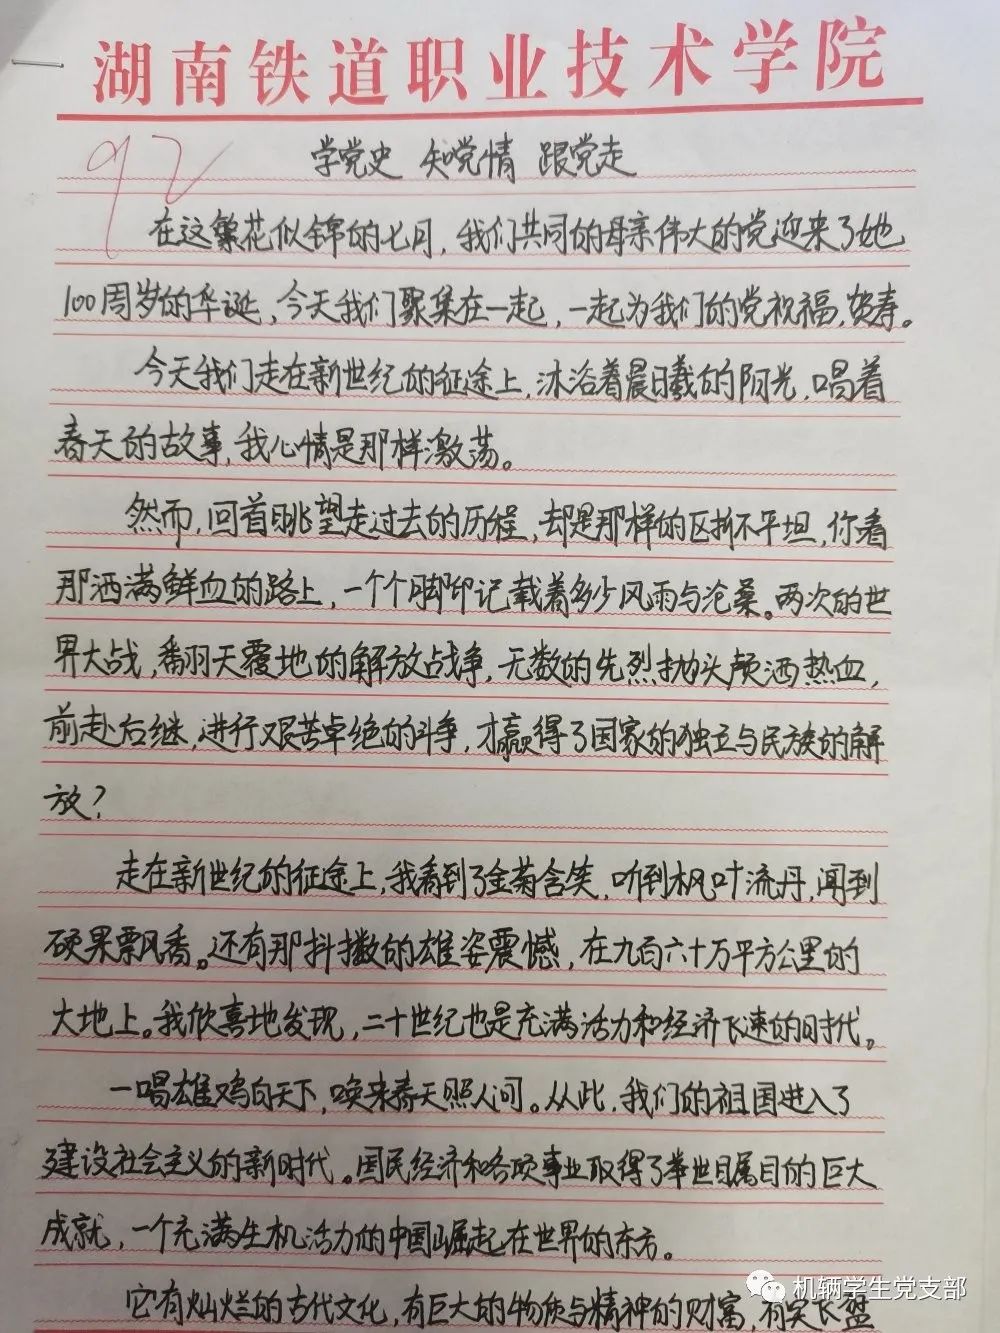 湖南铁道职业技术学院
92
学党史 知党情 跟党走
在这繁花似锦的七月,我们共同的母亲伟大的党迎来了她
100周岁的华诞,今天我们聚集在一起,一起为我们的党祝福,贺寿。
今天我们走在新世纪的征途上,沐浴着晨曦的阳光,唱着
春天的故事,我心情是那样激荡。
然而,回首眺望走过去的历程,却是那样的区折不平坦,你看
那洒满鲜血的路上,一个个脚印记载着多少风雨与沧桑。两次的世
界大战,翻天覆地的解放战争,无数的先烈抛头颅洒热血,
前赴后继,进行艰苦卓绝的斗争,才赢得了国家的独立与民族的解
放?
走在新世纪的征途上,我看到了金菊含笑,听到枫叶流丹,闻到
硕果飘香。还有那抖擞的雄姿震憾,在九百六十万平方公里的
大地上。我欣喜地发现,二十世纪也是充满活力和经济飞速的时代。
一唱雄鸡白天下,唤来春天照人间。从此,我们的祖国进入了
建设社会主义的新时代。国民经济和各项事业取得了举世瞩目的巨大
成就,一个充满生机活力的中国崛起在世界的东方。
它有灿烂的古代文化,有巨大的物质与精神的财富,有
机辆学生党支部